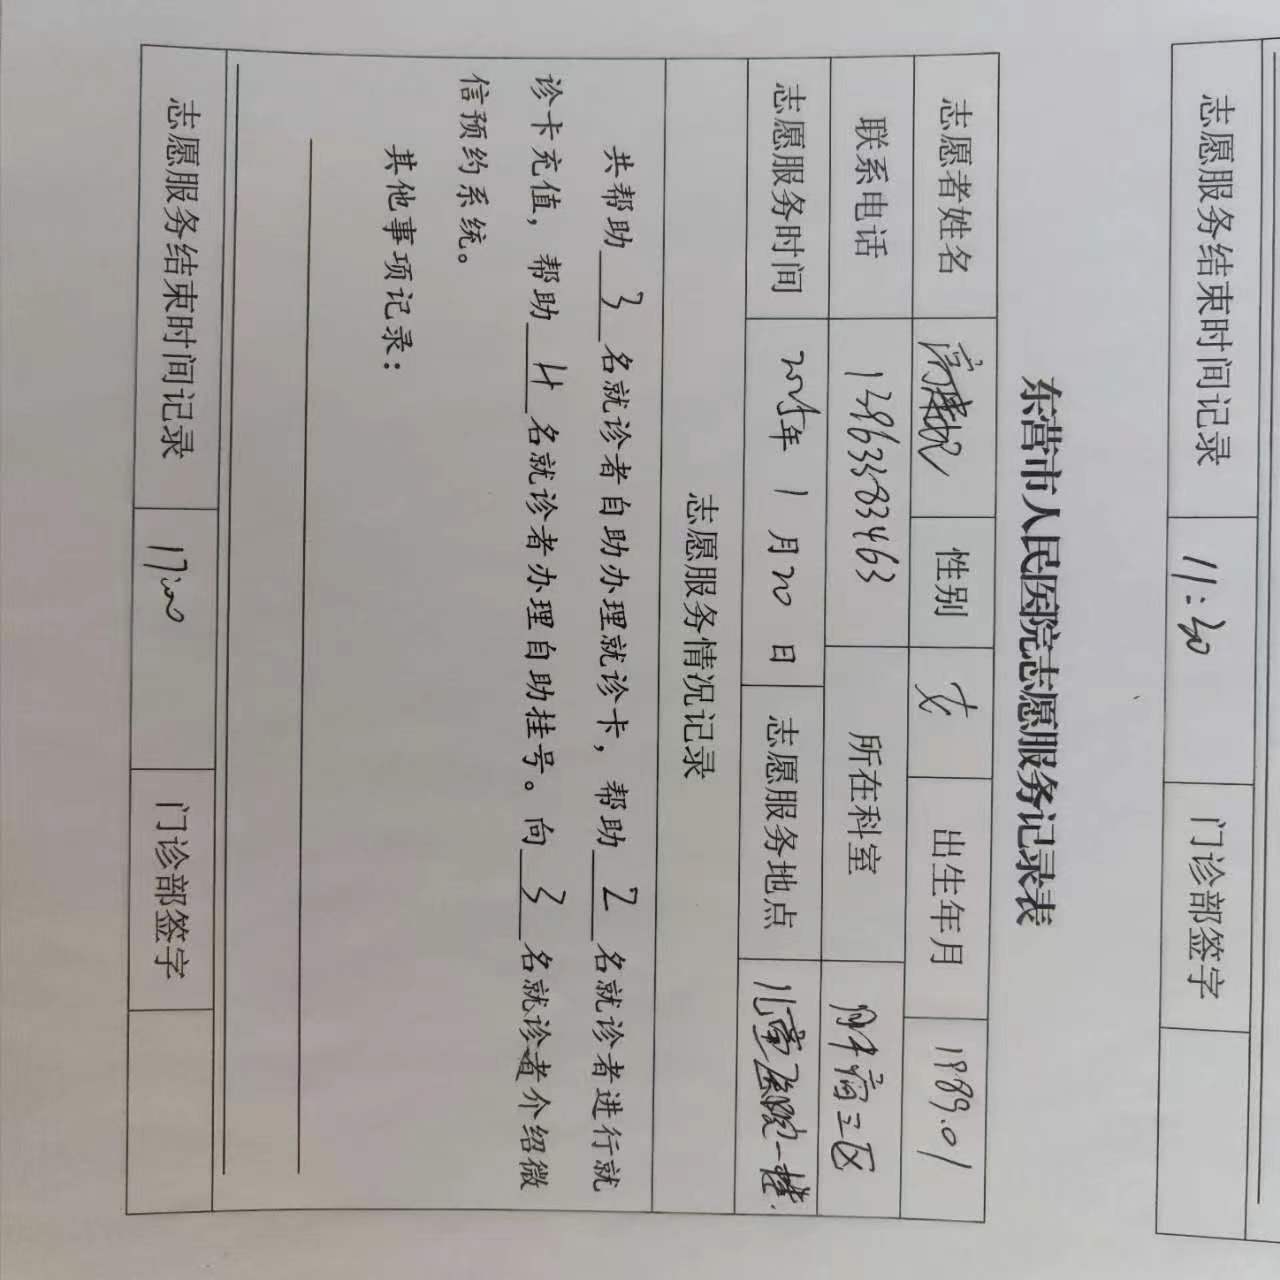 志愿服务结束时间记录 11:30 门诊部签字
东营市人民医院志愿服务记录表
志愿者姓名 性别 女 出生年月 1989.01
联系电话 13963583463 所在科室
志愿服务时间 2025年 1 月 20 日 志愿服务地点 儿童医院一楼
志愿服务情况记录
共帮助 3 名就诊者自助办理就诊卡，帮助 2 名就诊者进行就
诊卡充值，帮助 4 名就诊者办理自助挂号。向 3 名就诊者介绍微
信预约系统。
其他事项记录：
志愿服务结束时间记录 17:00 门诊部签字